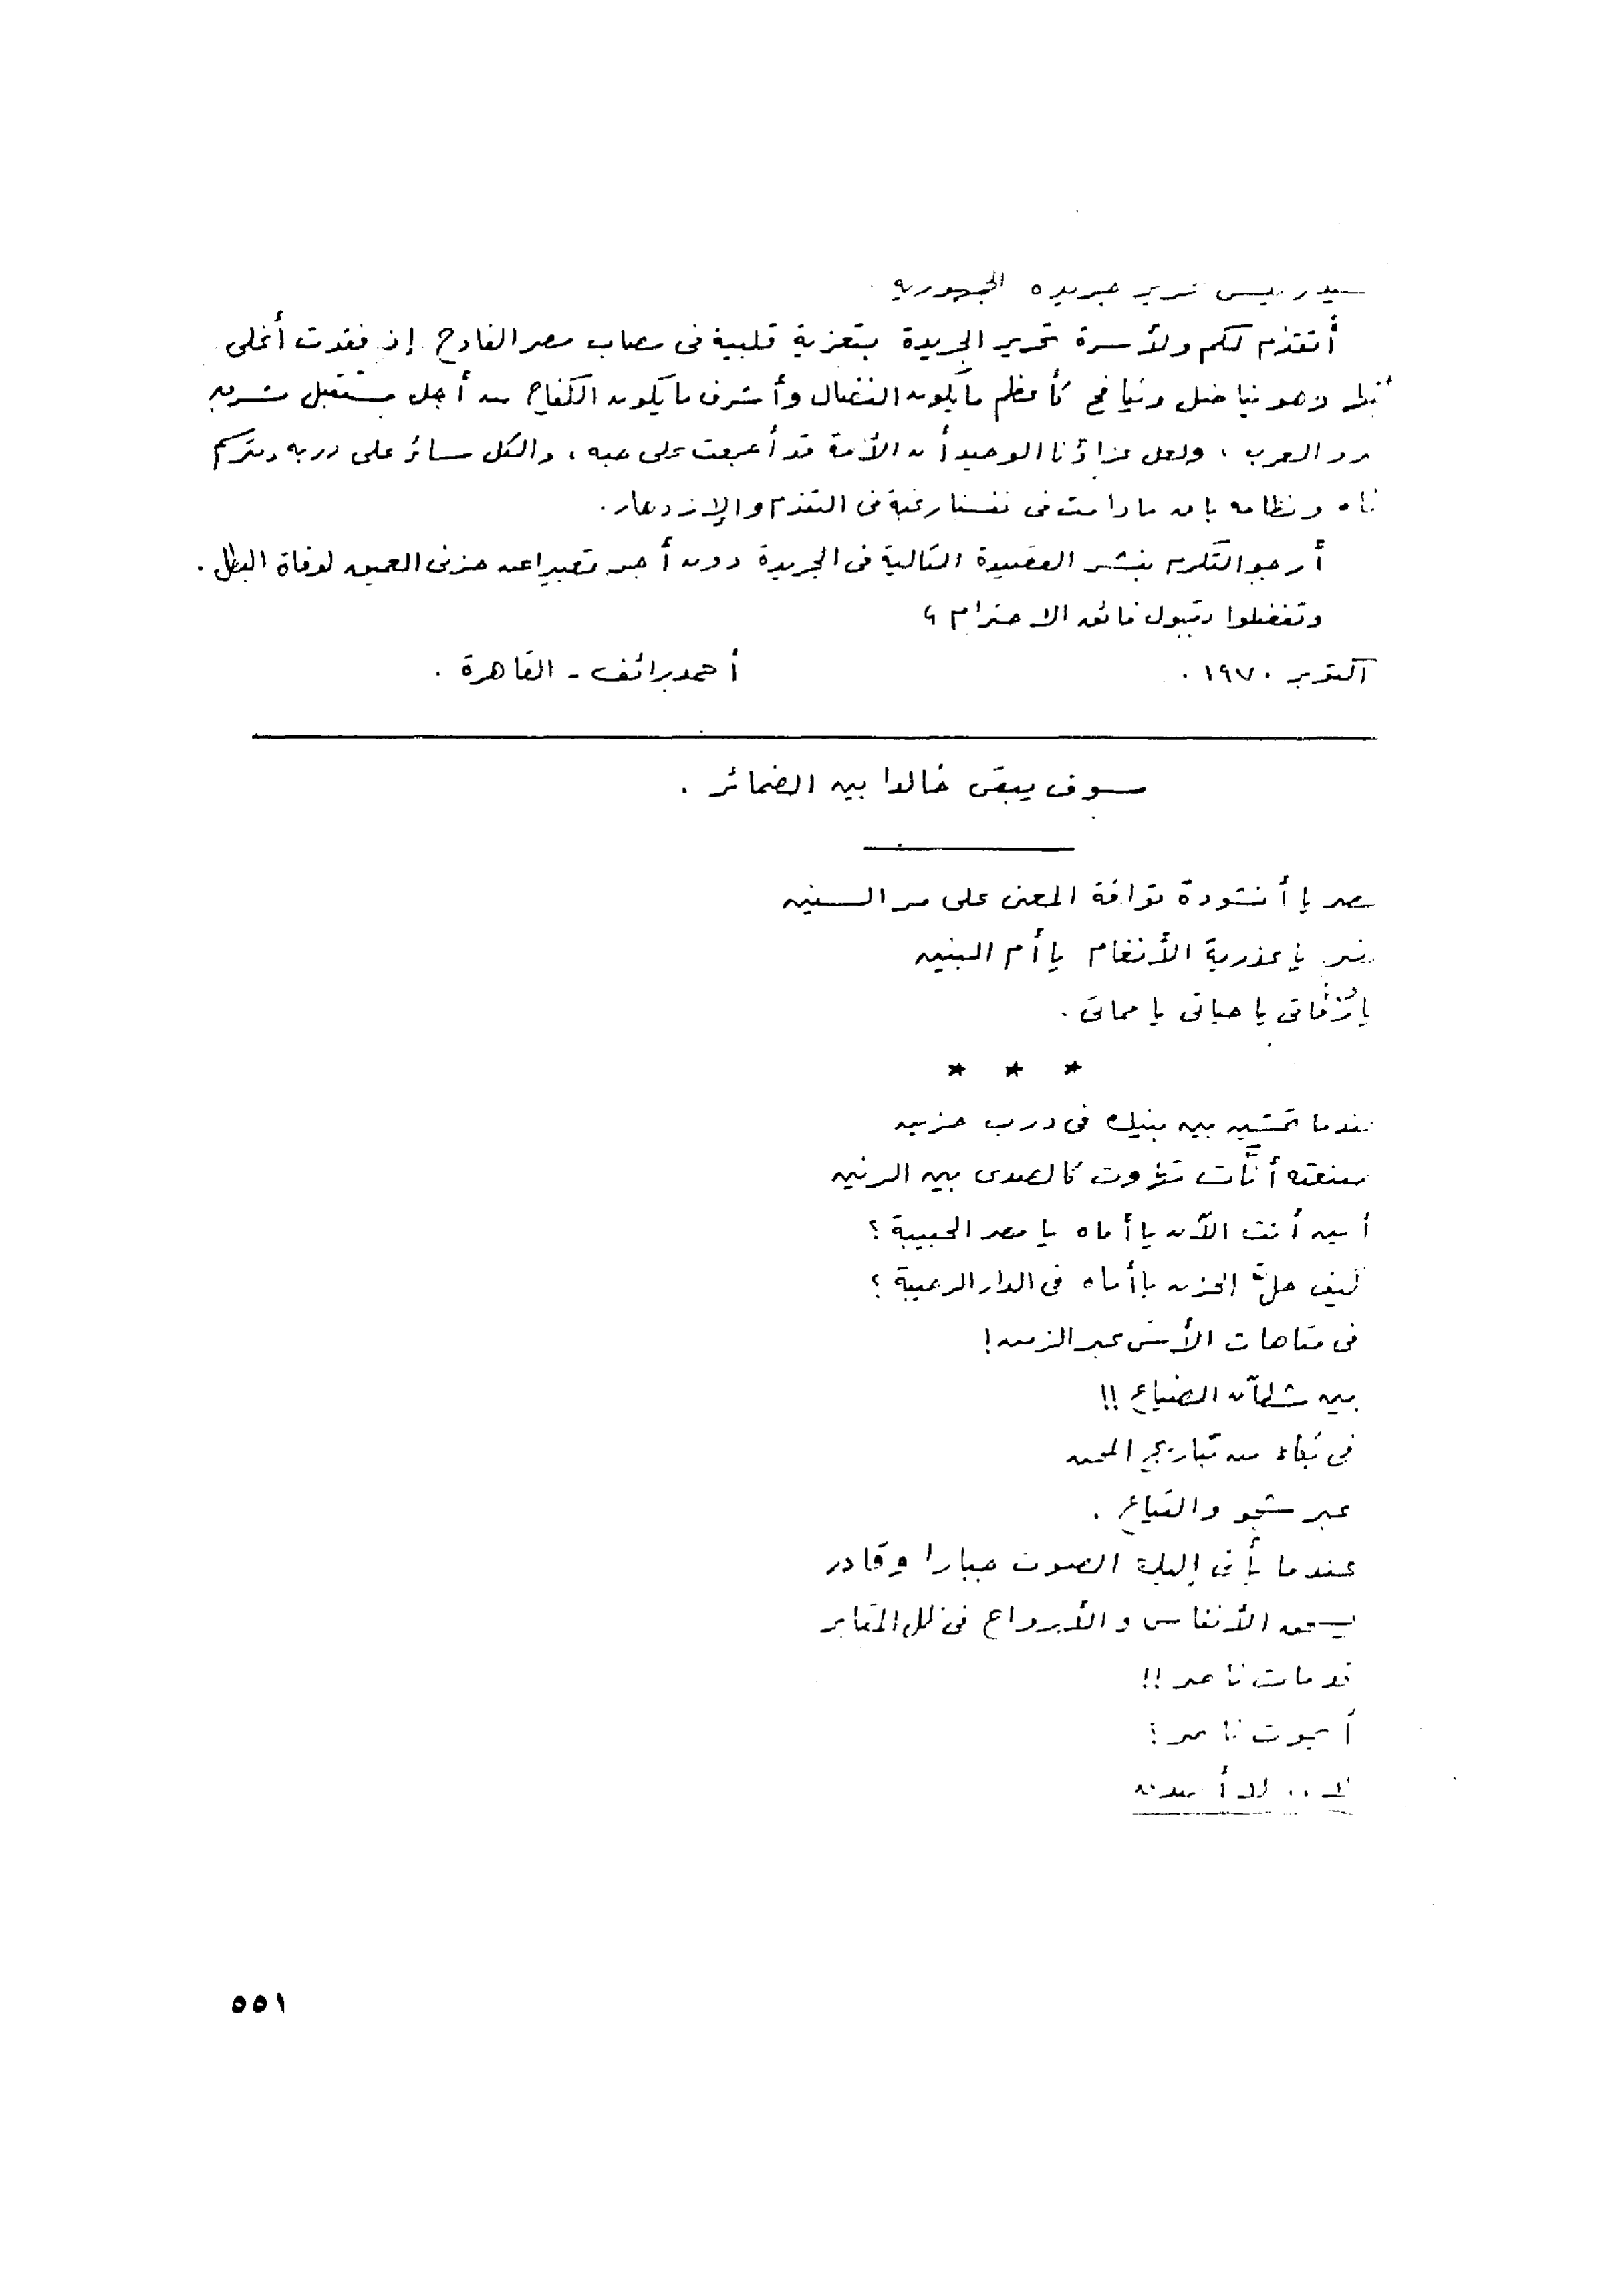 تحرير جريدة الجمهورية
أتقدم لكم ولأسرة تحرير الجريدة بتعزية قلبية فى مصاب مصر الفادح إذ فقدت أغلى
وهو يناضل وينافح كأعظم ما يكون النضال وأشرف ما يكون الكفاح من أجل مستقبل
العرب ، ولعل عزاؤنا الوحيد أن الأمة قد أجمعت على حبه ، والكل سائر على دربه
ونظامه ما دامت فى نفسنا رغبة فى التقدم والإزدهار .
أرجو التكرم بنشر القصيدة التالية فى الجريدة دون أجر تعبيرا عن حزنى العميق لوفاة البطل .
وتفضلوا بقبول فائق الاحترام ،
أكتوبر ١٩٧٠ . أحمد رائف - القاهرة .
سوف يبقى خالدا بين الضمائر .
مصر يا أنشودة تواقة المعنى على مر السنين
يا عذرية الأنغام يا أم البنين
يا حياتى يا مماتى .
* * *
عندما تمشين بين بنيك فى درب حزين
أنّات كالصدى بين الرنين
أين أنت الآن يا أماه يا مصر الحبيبة ؟
كيف حلّ الحزن يا أماه فى الدار الرحيبة ؟
فى متاهات الأسى عبر الزمن !
بين شطآن الضياع !!
فى بكاء من تباريح المحن
عبر شجو والتياع .
عندما يأتى إليك الصوت جبارا وقادر
يسحق الأنفاس والأرواح فى ظل المقابر
قد مات ناصر !!
أيموت ناصر ؟
لا .. لا أصدق
٥٥١